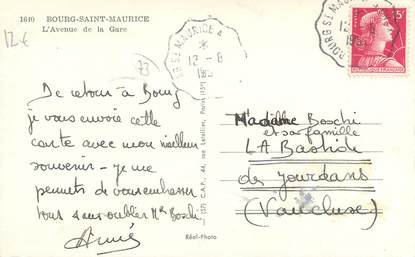 1640 BOURG-SAINT-MAURICE
L'Avenue de la Gare
12€
BG ST MAURICE A
12-8
BG ST MAURICE
12-8
15F
De retour à Bourg
je vous envoie cette
carte avec mon meilleur
souvenir - je me
permets de vous embrasser
tous sans oublier Mr Boschi
Aimé
(57) C.A.P. 44, rue Letellier, Paris (15e)
Réal-Photo
Madame Boschi
et sa famille
LA Bastide
des Jourdans
(Vaucluse)